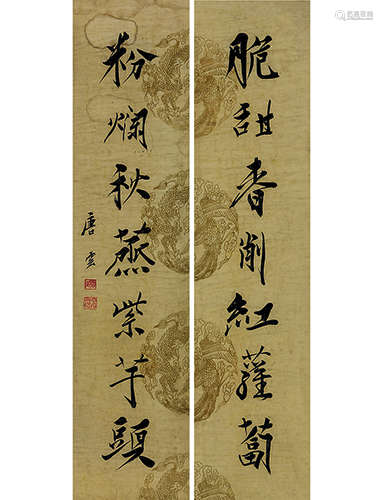 脆甜春削紅蘿蔔
粉爛秋蒸紫芋頭
唐雲